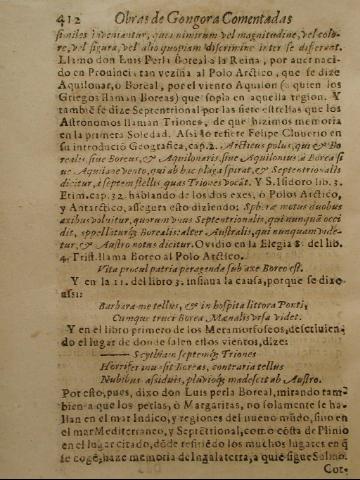 412 Obras de Gongora Comentadas
similes inveniuntur, quæ nimirum vel magnitudine, vel colo-
re, vel figura, vel alio quopiam discrimine inter se differant.
Llamo don Luis Perla Boreal a la Reina, por auer naci-
do en Prouincia tan vezina al Polo Arctico, que se dize
Aquilonar, o Boreal, por el viento Aquilon (a quien los
Griegos llaman Boreas) que sopla en aquella region. Y
tambiē se dize Septentrional por las siete estrellas que los
Astronomos llaman Triones, de que hizimos memoria
en la primera Soledad. Assi lo refiere Felipe Cluuerio en
su introdució Geografica, cap. 2. Arcticus polus, qui & Bo
realis siue Boreus, & Aquilonaris, siue Aquilonius à Borea si
ue Aquilone vento, qui ab hac plaga spirat, & Septentrionalis
dicitur, à septem stellis quas Triones vocāt. Y S. Isidoro lib. 3.
Etim. cap. 32. hablando de los dos exes, ò Polos Arctico,
y Antarctico, assegura esto diziendo: Sphæræ motus duobus
axibus voluitur, quorum vnus Septentrionalis, qui nunquā occi
dit, appellaturq; Borealis: alter Australis, qui nunquam vide-
tur, & Austro notus dicitur. Ovidio en la Elegia 8. del lib.
4. Trist. llama Boreo al Polo Arctico.
Vita procul patria peragenda sub axe Boreo est.
Y en la 11. del libro 3. insinua la causa, porque se dize
assi:
Barbara me tellus, & inhospita littora Ponti,
Cumque truci Borea Mænalis vrsa videt.
Y en el libro primero de los Metamorfoseos, descriuien-
do el lugar de donde salen estos vientos, dize:
—— Scythiam septemq; Triones
Horrifer inuasit Boreas, contraria tellus
Nubibus assiduis, pluvioq; madescit ab Austro.
Por esto, pues, dixo don Luis perla Boreal, mirando tam-
bien a que los perlas, ò Margaritas, no solamente se ha-
llan en el mar Indico, y regiones del nueuo mūdo, sino en
el mar Mediterraneo, y Septētrional, como cōsta de Plinio
en el lugar citado, dōde refiriēdo los muchos lugares en q̄
se coge, haze memoria de Ingalaterra, a quiē sigue Solino.